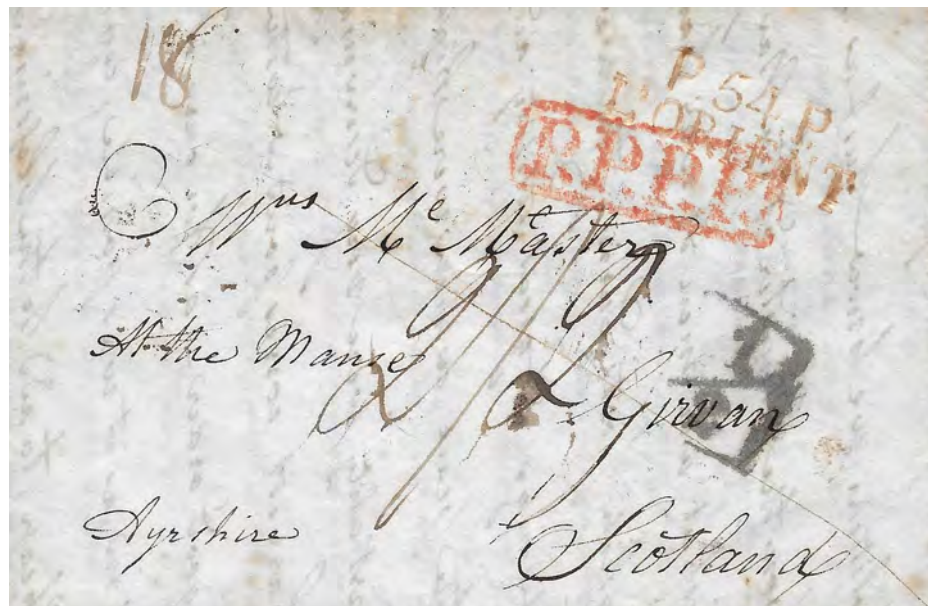 18
P. 54. P
L'ORIENT
P.P.P.P.
Mrs Mc Master
At the Manse
Girvan
Ayrshire
Scotland